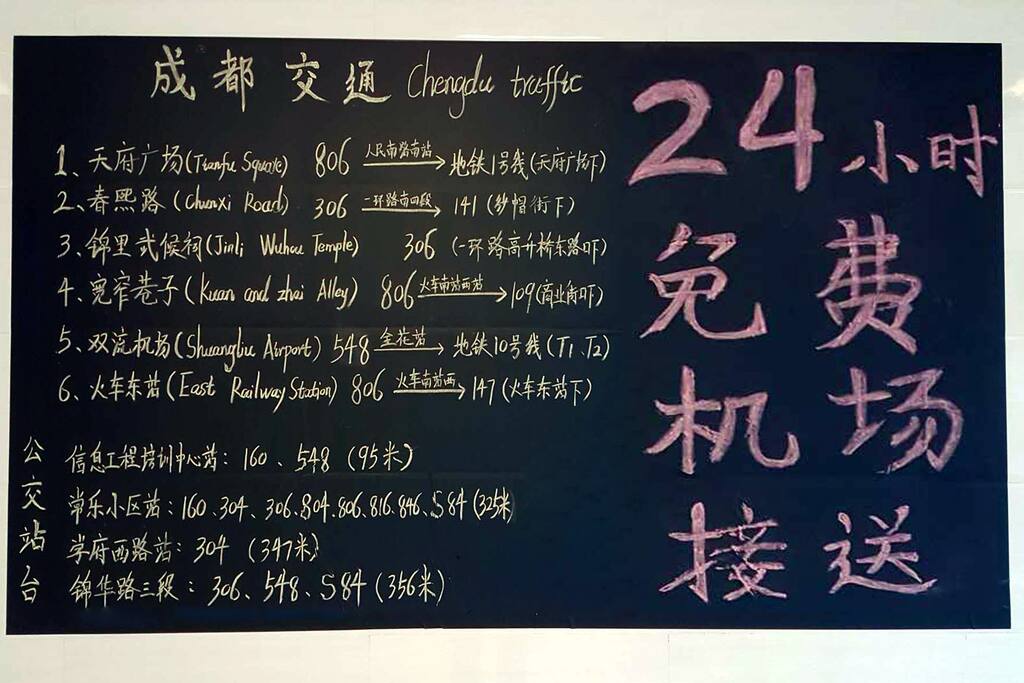 成都交通 Chengdu traffic
1、天府广场(Tianfu Square) 806 人民南路南站→ 地铁1号线(天府广场下)
2、春熙路(Chunxi Road) 306 一环路南四段→ 141(纱帽街下)
3、锦里武候祠(Jinli Wuhou Temple) 306(一环路高升桥东路口下)
4、宽窄巷子(Kuan and zhai Alley) 806 火车南站西站→ 109(商业街口下)
5、双流机场(Shuangliu Airport) 548 金花站→ 地铁10号线(T1、T2)
6、火车东站(East Railway Station) 806 火车南站西→ 147(火车东站下)
公交站台
信息工程培训中心站:160、548(95米)
常乐小区站:160、304、306、804、806、816、846、S84(325米)
学府西路站:304(347米)
锦华路三段:306、548、S84(356米)
24小时
免费
机场
接送